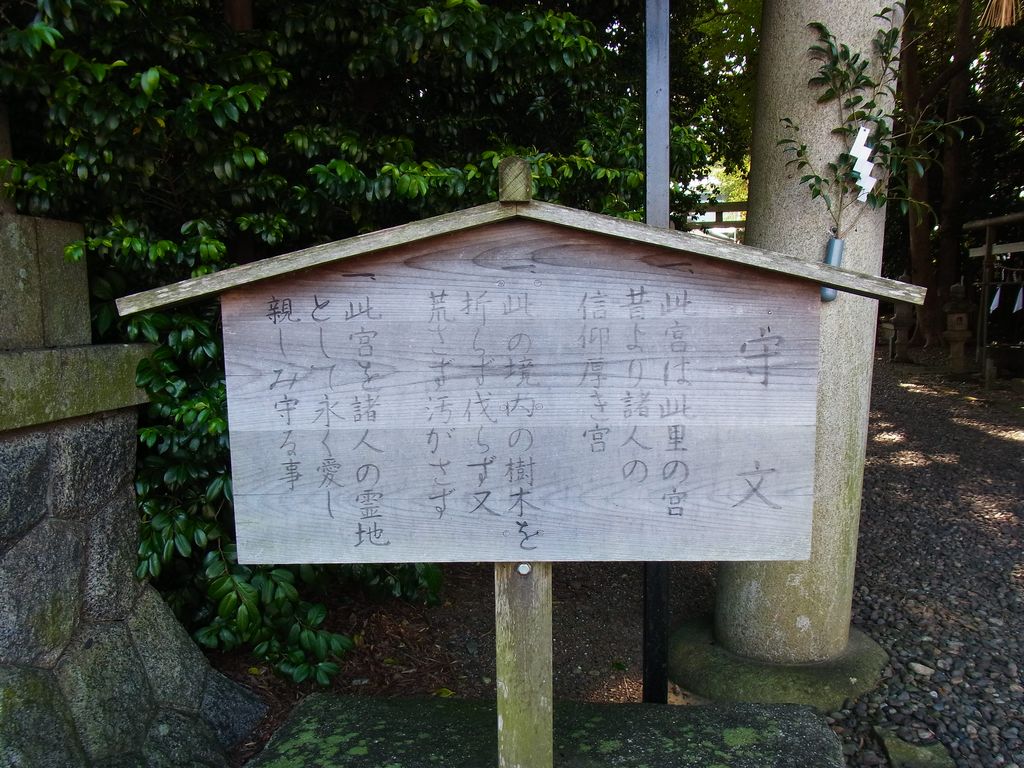 守文
一、此宮は此里の宮
昔より諸人の
信仰厚き宮
一、此の境内の樹木を
折らず伐らず又
荒さず汚がさず
一、此宮を諸人の霊地
として永く愛し
親しみ守る事